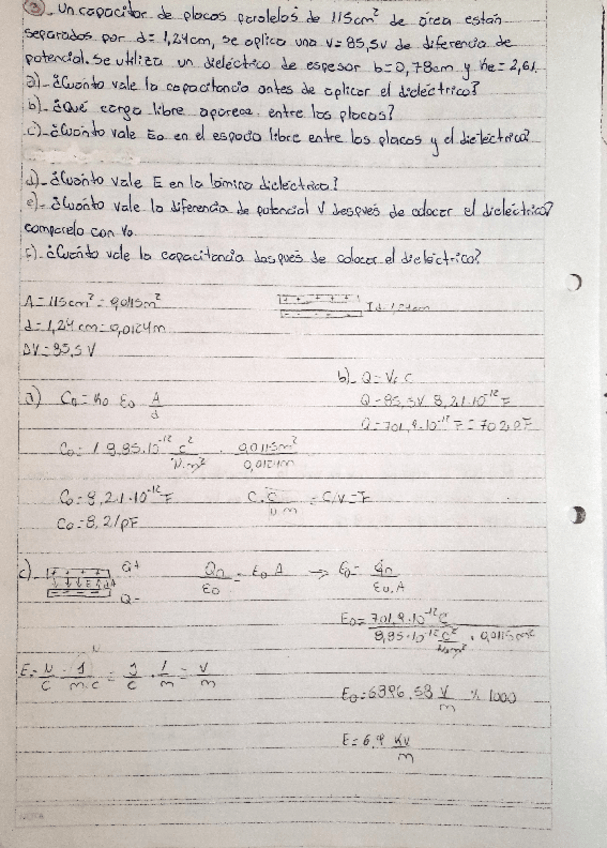 ③_ Un capacitor de placas paralelas de 115cm² de área están
separadas por d=1,24cm, se aplica una v=85,5v de diferencia de
potencial. Se utiliza un dieléctrico de espesor b=0,78cm y Ke=2,61.
a)_ ¿Cuánto vale la capacitancia antes de aplicar el dieléctrico?
b)_ ¿Qué carga libre aparece entre las placas?
c)_ ¿Cuánto vale E₀ en el espacio libre entre las placas y el dieléctrico?
d)_ ¿Cuánto vale E en la lámina dieléctrica?
e)_ ¿Cuánto vale la diferencia de potencial V después de colocar el dieléctrico?
comparelo con V₀
f)_ ¿Cuánto vale la capacitancia después de colocar el dieléctrico?
A=115cm²=0,0115m²
d=1,24cm=0,0124m
ΔV=85,5V
a) C₀=K₀ ε₀ A/d
C₀= 1 8,85.10⁻¹² C²/N.m² . 0,0115m²/0,0124m
C₀=8,21.10⁻¹²F
=C/V=F
C₀=8,21pF
b)_ Q=V.C
Q=85,5V 8,21.10⁻¹²F
Q=701,9.10⁻¹²F=702pF
c)_ Q+
Q-
Q₀/ε₀=E₀ A → E₀=q₀/ε₀.A
E₀=701,9.10⁻¹²C/8,85.10⁻¹²C²/N.m² . 0,0115m²
E=N/C J/m.C = J/C . 1/m = V/m
E₀=6896,58 V/m ÷ 1000
E=6,9 KV/m